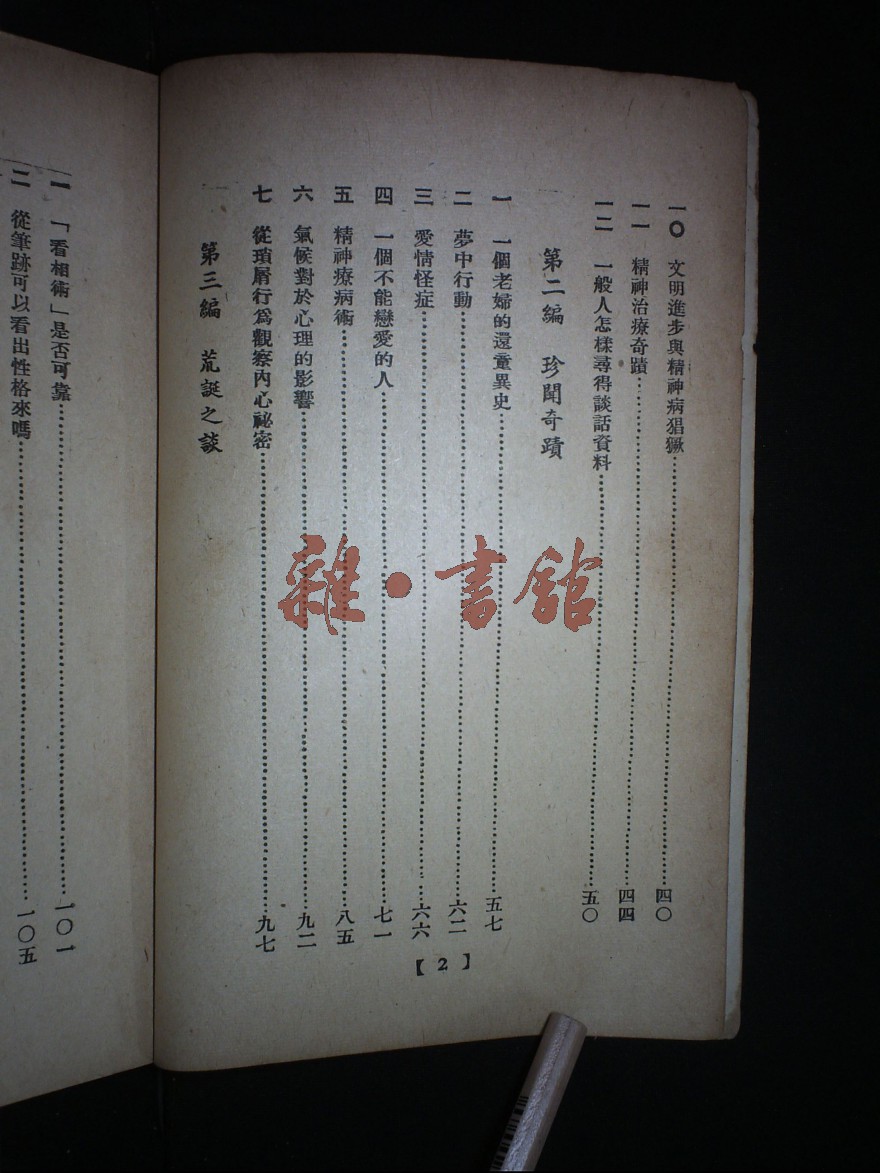 一〇　文明進步與精神病猖獗……四〇
一一　精神治療奇蹟……四四
一二　一般人怎樣尋得談話資料……五〇
第二編　珍聞奇蹟
一　一個老婦的還童異史……五七
二　夢中行動……六二
三　愛情怪症……六六
四　一個不能戀愛的人……七一
五　精神療病術……八五
六　氣候對於心理的影響……九二
七　從瑣屑行爲觀察內心祕密……九七
第三編　荒誕之談
【2】
一　「看相術」是否可靠……一〇一
二　從筆跡可以看出性格來嗎……一〇五
雜·書館